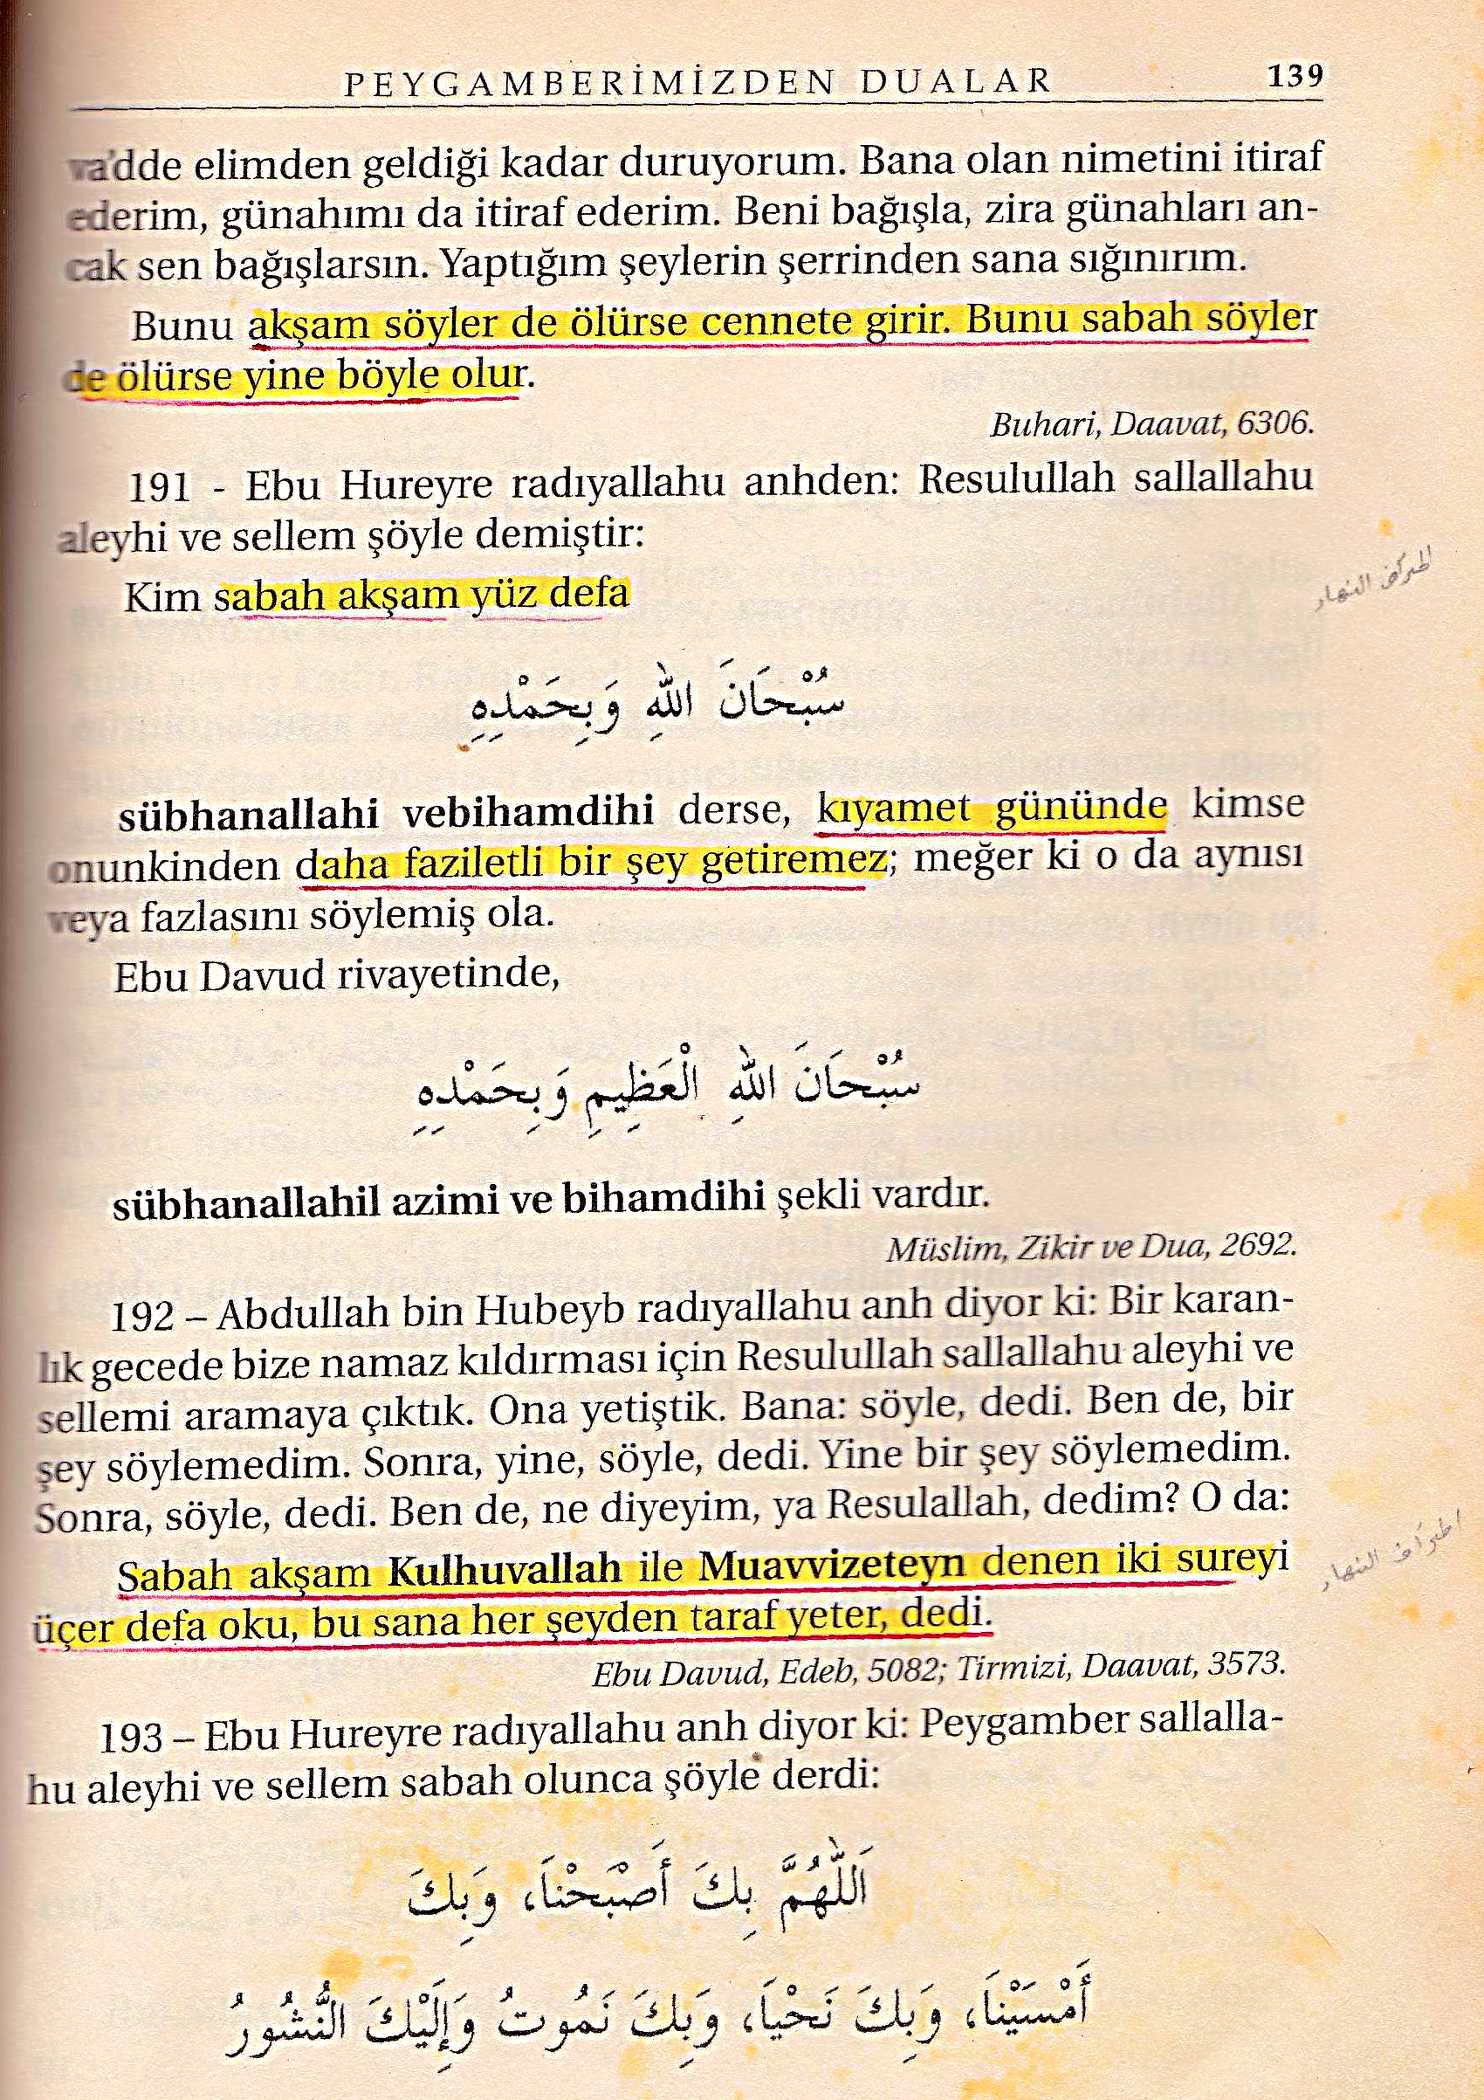 PEYGAMBERİMİZDEN DUALAR 139
va'dde elimden geldiği kadar duruyorum. Bana olan nimetini itiraf
ederim, günahımı da itiraf ederim. Beni bağışla, zira günahları an-
cak sen bağışlarsın. Yaptığım şeylerin şerrinden sana sığınırım.
Bunu akşam söyler de ölürse cennete girir. Bunu sabah söyler
de ölürse yine böyle olur.
Buhari, Daavat, 6306.
191 - Ebu Hureyre radıyallahu anhden: Resulullah sallallahu
aleyhi ve sellem şöyle demiştir:
Kim sabah akşam yüz defa
النهار
سُبْحَانَ اللهِ وَبِحَمْدِهِ
sübhanallahi vebihamdihi derse, kıyamet gününde kimse
onunkinden daha faziletli bir şey getiremez; meğer ki o da aynısı
veya fazlasını söylemiş ola.
Ebu Davud rivayetinde,
سُبْحَانَ اللهِ الْعَظِيمِ وَبِحَمْدِهِ
sübhanallahil azimi ve bihamdihi şekli vardır.
Müslim, Zikir ve Dua, 2692.
192 – Abdullah bin Hubeyb radıyallahu anh diyor ki: Bir karan-
lık gecede bize namaz kıldırması için Resulullah sallallahu aleyhi ve
sellemi aramaya çıktık. Ona yetiştik. Bana: söyle, dedi. Ben de, bir
şey söylemedim. Sonra, yine, söyle, dedi. Yine bir şey söylemedim.
Sonra, söyle, dedi. Ben de, ne diyeyim, ya Resulallah, dedim? O da:
Sabah akşam Kulhuvallah ile Muavvizeteyn denen iki sureyi
üçer defa oku, bu sana her şeyden taraf yeter, dedi.
اطراف النهار
Ebu Davud, Edeb, 5082; Tirmizi, Daavat, 3573.
193 – Ebu Hureyre radıyallahu anh diyor ki: Peygamber sallalla-
hu aleyhi ve sellem sabah olunca şöyle derdi:
اَللّٰهُمَّ بِكَ أَصْبَحْنَا، وَبِكَ
أَمْسَيْنَا، وَبِكَ نَحْيَا، وَبِكَ نَمُوتُ وَإِلَيْكَ النُّشُورُ